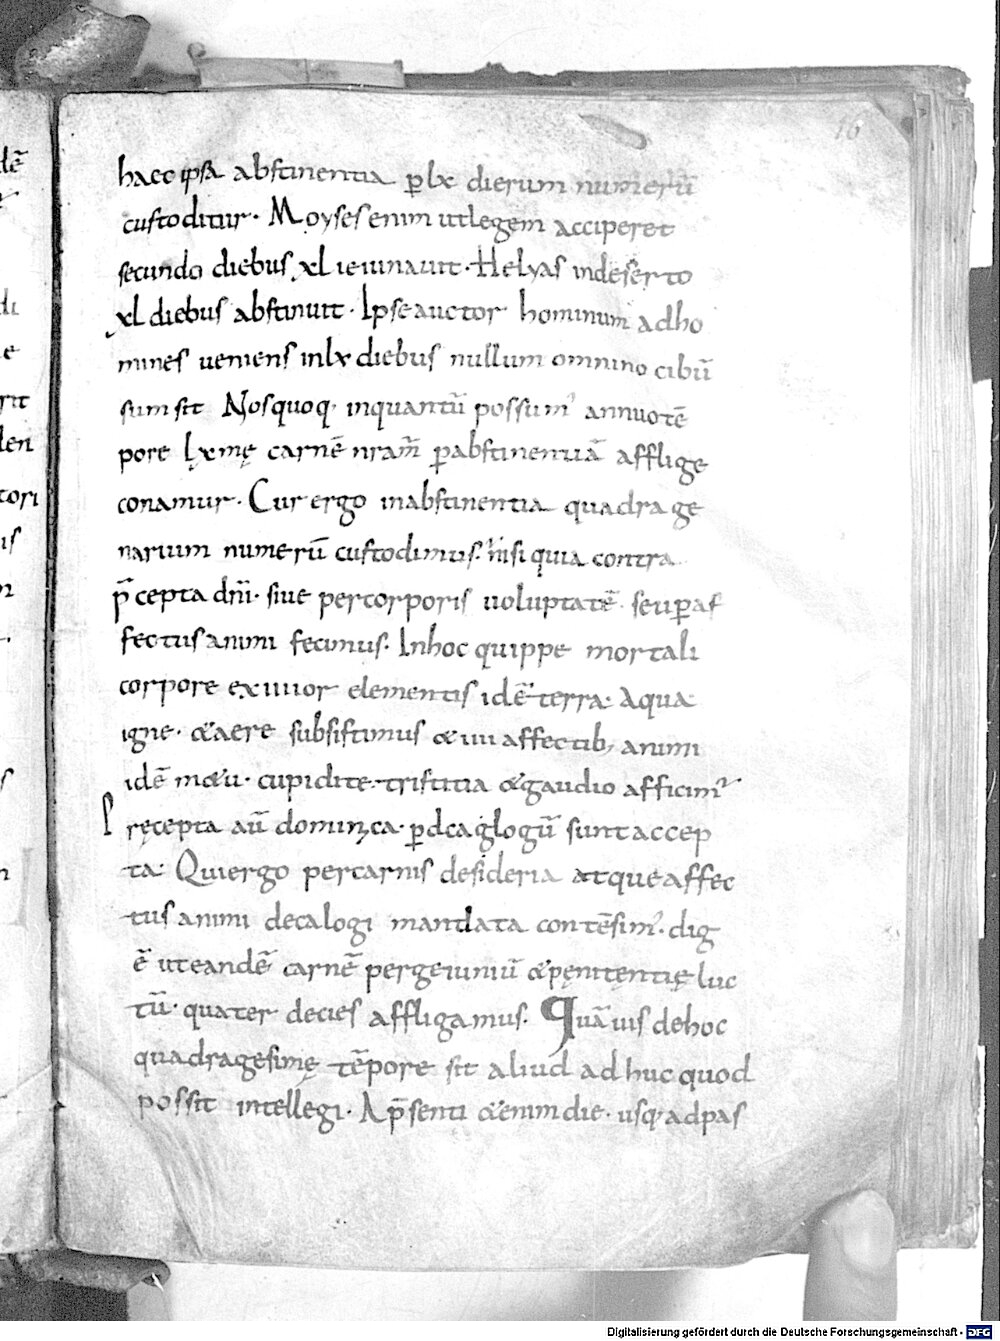 16
haec ipsa abstinentia ꝑ lx dierum numerū
custoditur. Moyses enim ut legem acciperet
secundo diebus xl ieiunauit. Helyas in deserto
xl diebus abstinuit. Ipse auctor hominum ad ho
mines ueniens in lx diebus nullum omnino cibū
sumsit Nos quoq· inquantū possumꝰ annuo tē
pore lxmę carnē nr̄am̄ ꝑ abstinentiā afflige
conamur. Cur ergo in abstinentia quadrage
narium numerū custodimus. nisi quia contra
p̄cepta dn̄i. siue per corporis uoluptatē. seu ꝑ af
fectus animi fecimus. In hoc quippe mortali
corpore ex iiiior elementis idē terra. Aqua
igne. & aere subsistimus & iiii affectib; animi
idē m&u. cupidite. tristitia & gaudio afficimꝰ
Pręcepta aū dominica. ꝑ dcaglogū sunt accep
ta. Qui ergo per carnis desideria atque affec
tus animi decalogi mandata contēsimꝰ. dig
ē ut eandē carnē per geiuniū & pęnitentię luc
tū. quater decies affligamus. Quāuis de hoc
quadragesimę tēpore sit aliud adhuc quod
possit intellegi. A p̄senti &enim die. usq· ad pas
Digitalisierung gefördert durch die Deutsche Forschungsgemeinschaft - DFG